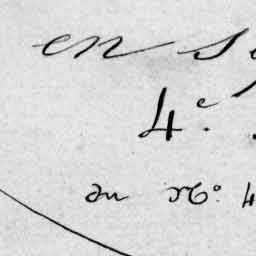 en s
4e.
du No. 4